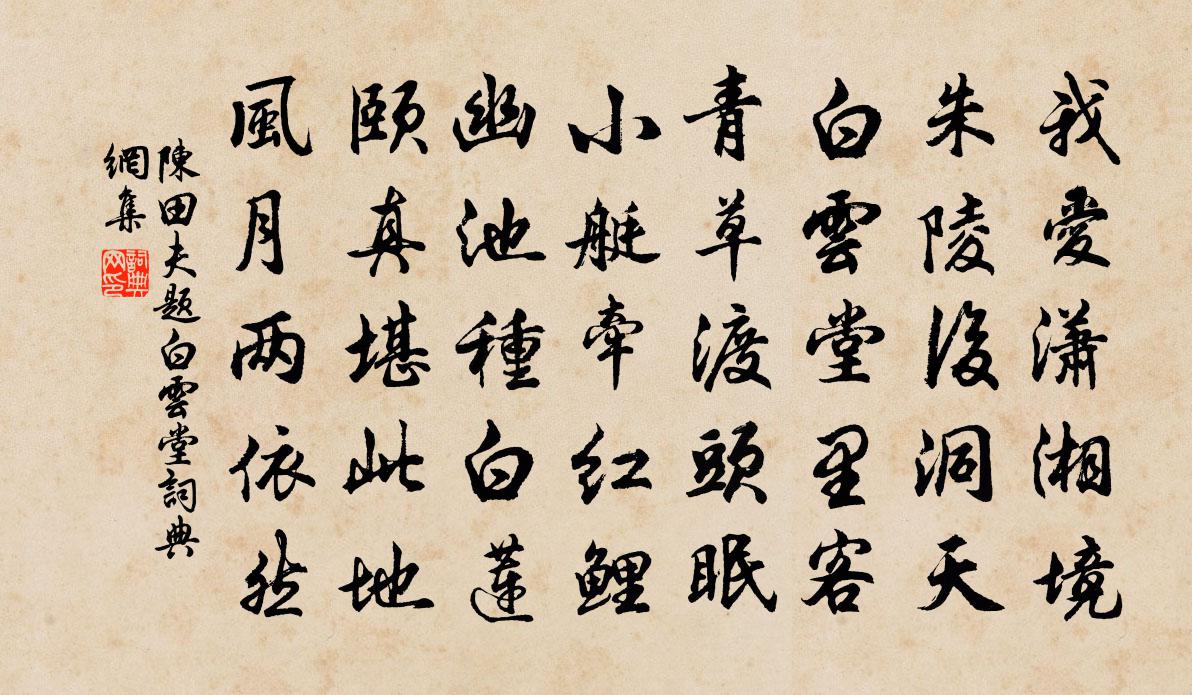 我愛瀟湘境
朱陵後洞天
白雲堂里客
青草渡頭眠
小艇牽紅鯉
幽池種白蓮
頤真堪此地
風月两依然
陳田夫題白雲堂詞典
網集
詞典網印